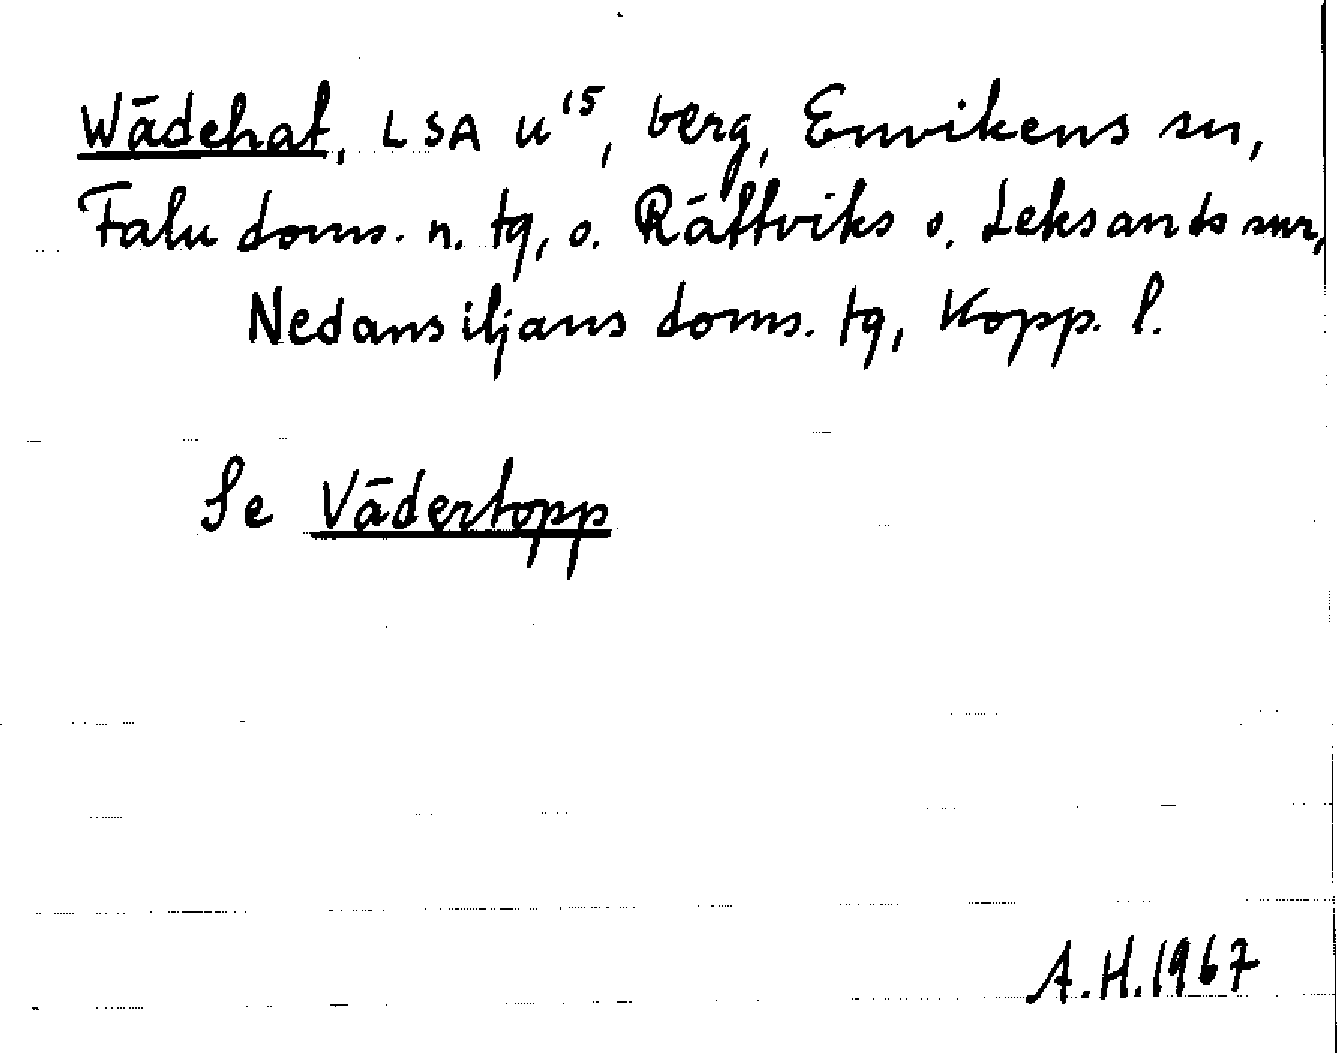 Wädehat, LSA U¹⁵, berg, Envikens sn,
Falu doms. n. tg, o. Rättviks o. Leksands snr,
Nedansiljans doms. tg, Kopp. l.
Se Vädertopp
A.H.1967